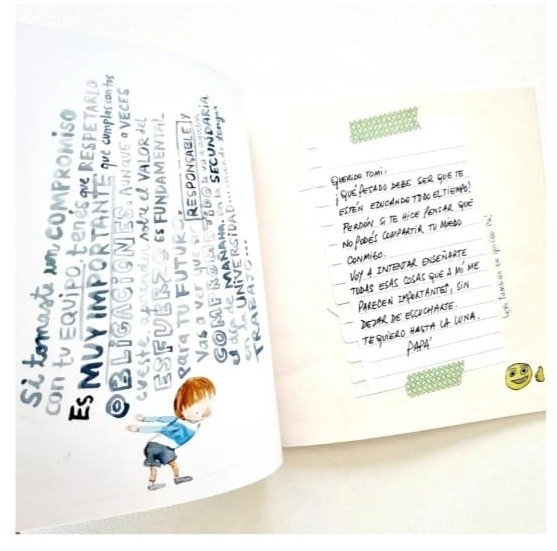 Si tomaste un COMPROMISO
con tu EQUIPO, tenés que RESPETARLO
Es MUY IMPORTANTE que cumplas con tus
OBLIGACIONES. AUNQUE A VECES
cueste, aprender sobre el VALOR del
ESFUERZO es FUNDAMENTAL
para tu FUTURO.
Vas a ver que ser RESPONSABLE Y
el día de MAÑANA, en la SECUNDARIA,
en la UNIVERSIDAD
TRABAJO...
QUERIDO TOMI:
¡QUÉ PESADO DEBE SER QUE TE
ESTÉN EDUCANDO TODO EL TIEMPO!
PERDÓN SI TE HICE PENSAR QUE
NO PODÉS COMPARTIR TU MIEDO
CONMIGO.
VOY A INTENTAR ENSEÑARTE
TODAS ESAS COSAS QUE A MÍ ME
PARECEN IMPORTANTES, SIN
DEJAR DE ESCUCHARTE.
TE QUIERO HASTA LA LUNA.
PAPÁ